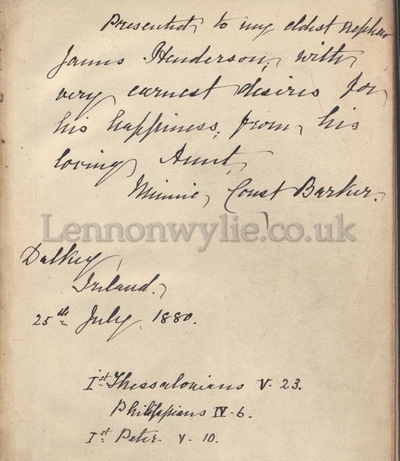 Presented to my eldest nephew
James Henderson, with
very earnest desires for
his happiness, from his
loving Aunt,
Minnie, Const Barker.
Lennonwylie.co.uk
Dalkey
Ireland,
25th July, 1880.
Ist Thessalonians V. 23.
Philippians IV. 6.
Ist Peter V. 10.